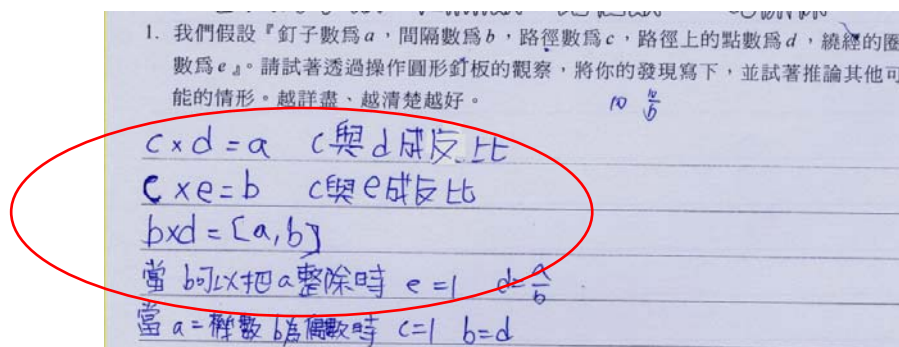 1. 我們假設『釘子數為a,間隔數為b,路徑數為c,路徑上的點數為d,繞經的圈
數為e』。請試著透過操作圓形釘板的觀察,將你的發現寫下,並試著推論其他可
能的情形。越詳盡、越清楚越好。
10 10/b
c×d=a c與d成反比
c×e=b c與e成反比
b×d=[a,b]
當 b可以把a整除時 e=1 d=a/b
當 a= b為偶數時 c=1 b=d